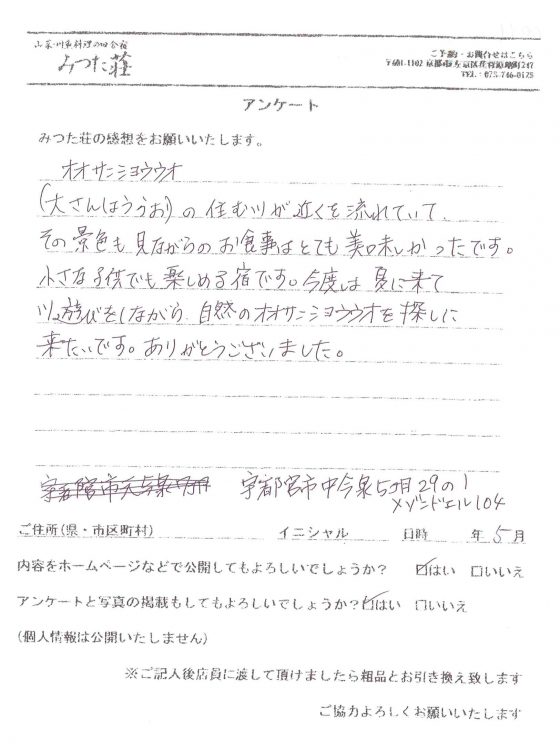 山菜・川魚料理の田舎宿
みつた荘
ご予約・お問合せはこちら
〒601-1102 京都市左京区花背原地町247
TEL : 075-746-0175
アンケート
みつた荘の感想をお願いいたします。
オオサンショウウオ
(大さんほううお)の住む川が近くを流れていて、
その景色も見ながらのお食事はとても美味しかったです。
小さな子供でも楽しめる宿です。今度は夏に来て
川遊びをしながら、自然のオオサンショウウオを探しに
来たいです。ありがとうございました。
宇都宮市中今泉5丁目29の1
メゾンドエル104
ご住所(県・市区町村) イニシャル 日時 年 5月
内容をホームページなどで公開してもよろしいでしょうか? ☑はい □いいえ
アンケートと写真の掲載もしてもよろしいでしょうか?☑はい □いいえ
(個人情報は公開いたしません)
※ご記入後店員に渡して頂けましたら粗品とお引き換え致します
ご協力よろしくお願いいたします